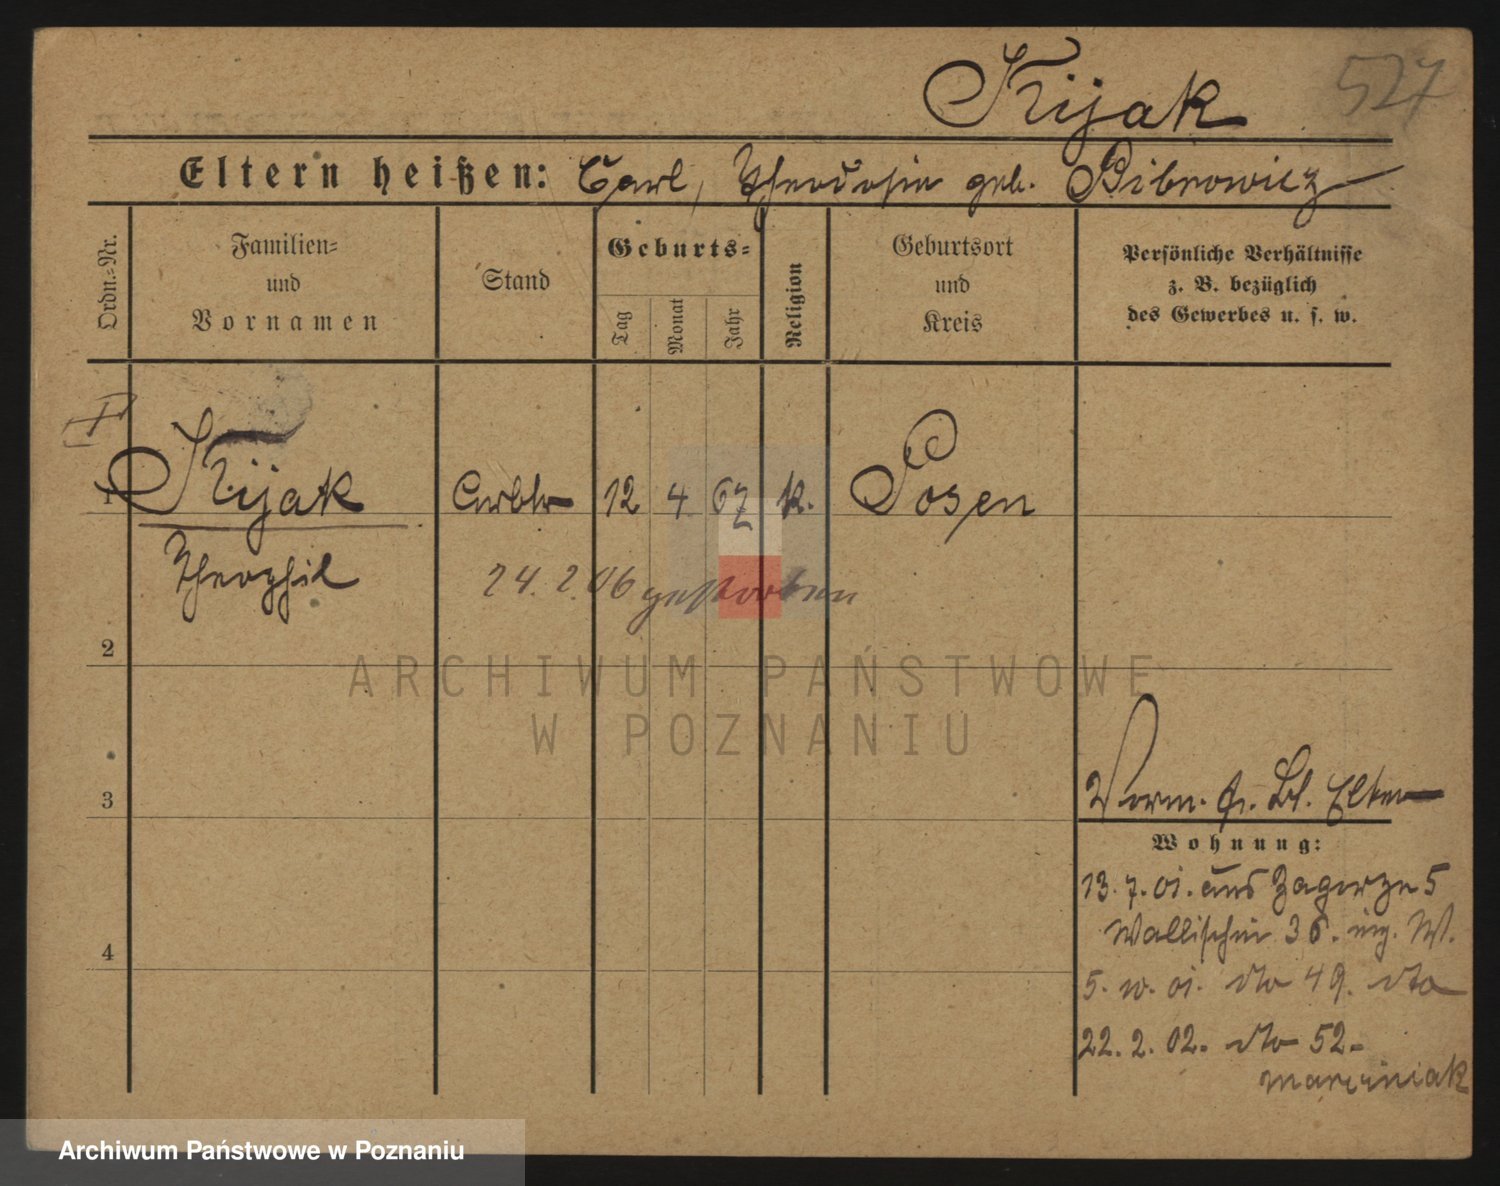 Kijak
527
Eltern heißen: Carl, Theodosia geb. Bibrowicz
Ordn.-Nr.
Familien-
und
Vornamen
Stand
Geburts-
Tag
Monat
Jahr
Religion
Geburtsort
und
Kreis
Persönliche Verhältnisse
z. B. bezüglich
des Gewerbes u. s. w.
1 Kijak Arbtr 12 4 67 k. Posen
Theophil
24. 2. 06 gestorben
2
3
4
Vorm. Bl. Eltern
Wohnung:
13. 7. 01. aus Zagorze 5
Wallischei 36. W.
5. 10. 01. dto 49. dto
22. 2. 02. dto 52.
Marciniak
ARCHIWUM PAŃSTWOWE
W POZNANIU
Archiwum Państwowe w Poznaniu